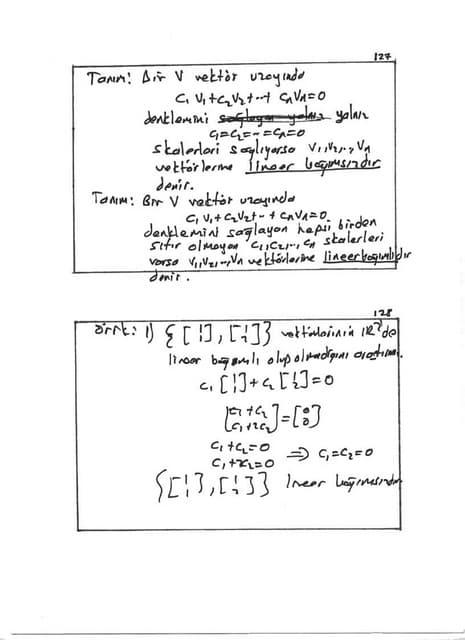 127
Tanım: Bir V vektör uzayında
c₁V₁+c₂V₂+--+ cₙVₙ=0
denklemini sağlayan yalnız yalnız
c₁=c₂=--=cₙ=0
skalerleri sağlıyorsa V₁,V₂,-,Vₙ
vektörlerine lineer bağımsızdır
denir.
Tanım: Bir V vektör uzayında
c₁V₁+c₂V₂+--+cₙVₙ=0
denklemini sağlayan hepsi birden
sıfır olmayan c₁,c₂,--,cₙ skalerleri
varsa V₁,V₂,--,Vₙ vektörlerine lineer bağımlıdır
denir.
128
Örnk: 1) {[1 1], [1 2]} vektörlerinin IR² de
lineer bağımlı olup olmadığını araştırınız.
c₁[1 1]+c₂[1 2]=0
[c₁+c₂ c₁+2c₂]=[0 0]
c₁+c₂=0
c₁+2c₂=0 ⇒ c₁=c₂=0
{[1 1], [1 2]} lineer bağımsızdır